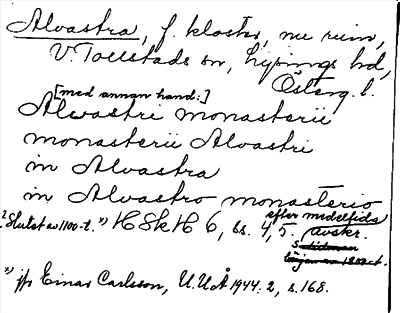 Alvastra, f. kloster, nu ruin,
V. Tollstads sn, Lysings hd,
Österg. l.
[med annan hand:]
Alvastri monasterii
monasterii Alvastri
in Alvastra
in Alvastro monasterio
? Slutet av 1100-t. *) HSkH 6, ss. 4, 5. efter medeltida avskr.
början av 1800-t.
*) jfr Einar Carlsson, U.U.Å 1944:2, s. 168.